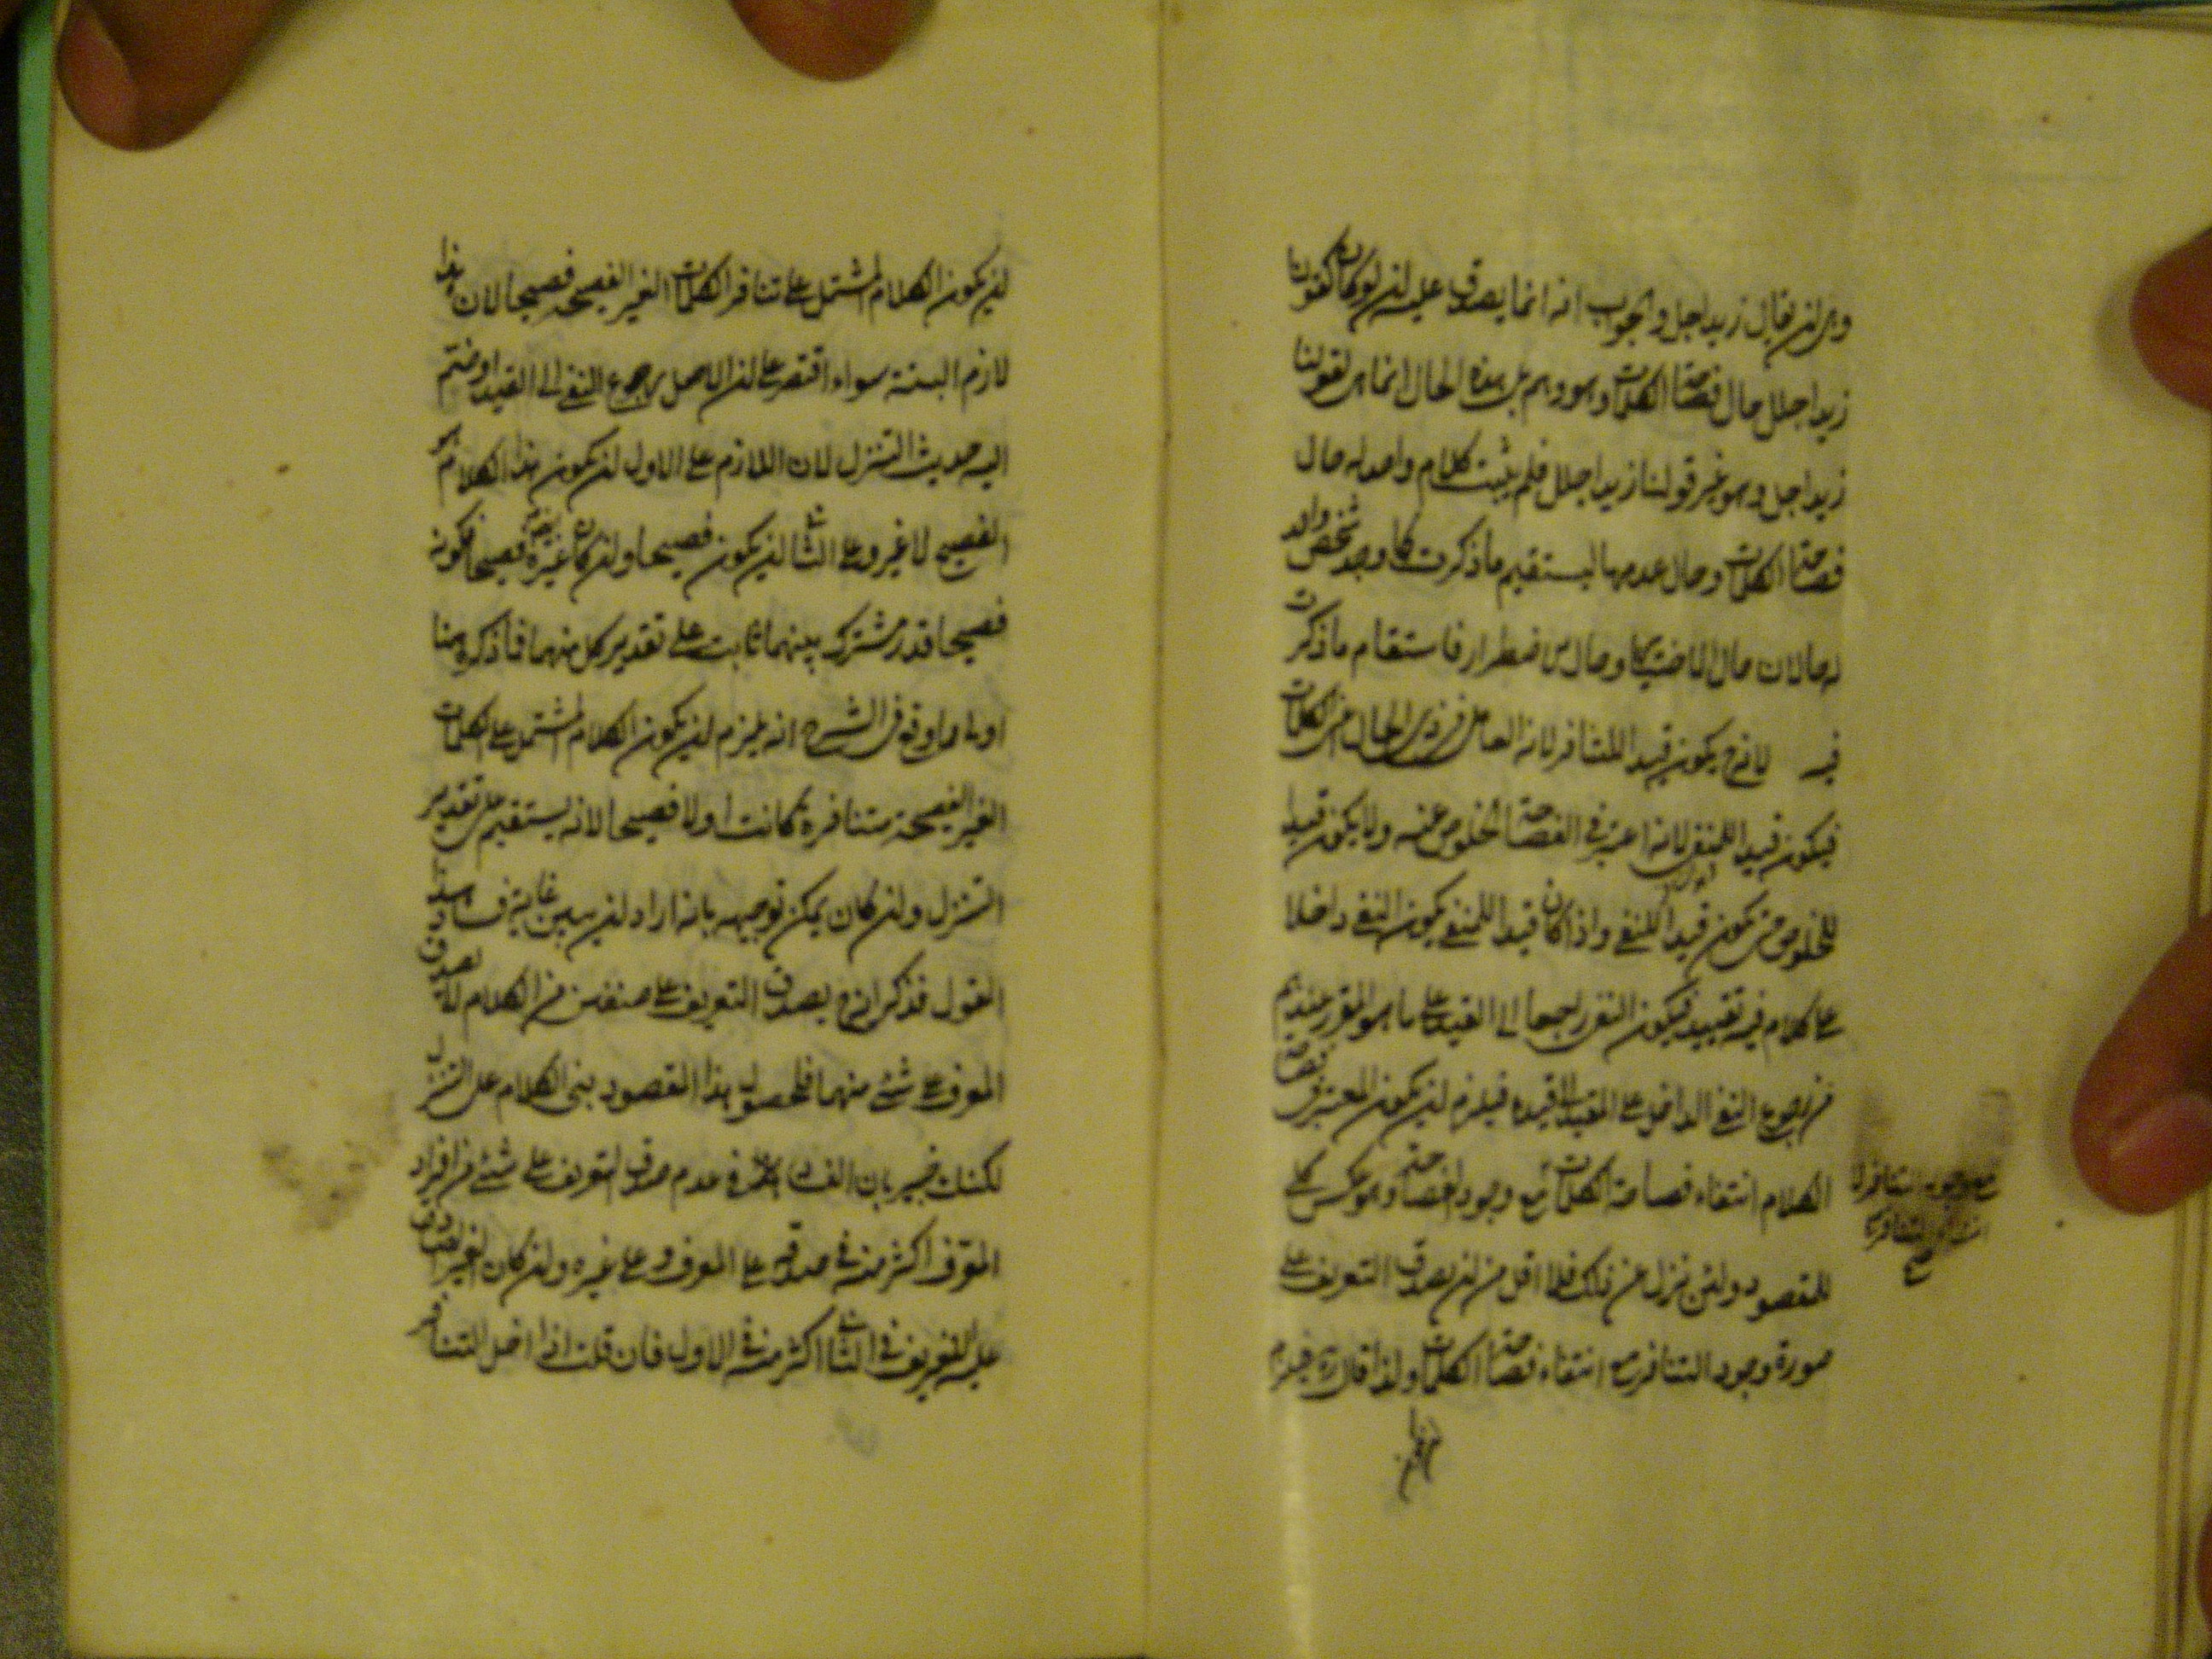 وهي ان يقال زيد اجل والجواب انه انما يصدق عليه ان لو كان قولنا
زيد اجلل حال فصاحة الكلمات وهو وهم بل هذه الحال انما هي لقولنا
زيد اجل وهو غير قولنا زيد اجلل فلم يثبت كلام واحد له حال
فصاحة الكلمات وحال عدمها ليستقيم ما ذكرت كما وجد شخص واحد
له حالان حال وحال اضطرار فاستقام ما ذكرت
فيه يكون قيدا للتنافر لانه العامل في ذي الحال اعني الكلمات
فيكون قيدا للمنفي لانه اعتبر في الفصاحة الخلوص عنه ولا يكون قيدا
للخلوص حتى يكون قيدا للنفي واذا كان قيدا للمنفي يكون النفي داخلا
على كلام فيه تقييد فيكون النفي راجعا الى القيد على ما هو المقرر عندهم
من رجوع النفي الداخل على المقيد الى قيده فيلزم ان يكون المعتبر في فصاحة
الكلام انتفاء فصاحة الكلمات مع وجود الفصاحة وهو عكس
للمقصود ولئن نزل عن ذلك فلا اقل من ان يصدق التعريف على
صورة وجود التنافر مع انتفاء فصاحة الكلمات ولذا قال
ان يكون الكلام المشتمل على تنافر الكلمات الغير الفصيحة فصيحا لان هذا
لازم البتة سواء اقتصر على ان الاصل رجوع النفي الى القيد او ضم
اليه حديث التنزل لان اللازم على الاول ان يكون هذا الكلام هو
الفصيح لا غير وعلى الثاني ان يكون فصيحا وان كان غيره فصيحا فكونه
فصيحا قدر مشترك بينهما ثابت على تقدير كل منهما فما ذكره هنا
اولى مما وقع في الشرح انه يلزم ان يكون الكلام المشتمل على الكلمات
الغير الفصيحة متنافرة كانت او لا فصيحا لانه يستقيم على تقدير
التنزل وان كان يمكن توجيهه بانه اراد ان يبين غاية فساد هذا
القول فذكر انه يصدق التعريف على صنفين من الكلام لا يصدق
المعرف على شيء منهما فلحصول هذا المقصود بنى الكلام على التنزل
لكنك خبير بان الفساد في عدم صدق التعريف على شيء من افراد
المعرف اكثر منه في صدقه على المعرف وعلى غيره وان كان الغير الصادق
عليه التعريف في الثاني اكثر منه في الاول فان قلت اذا اخل التنافر